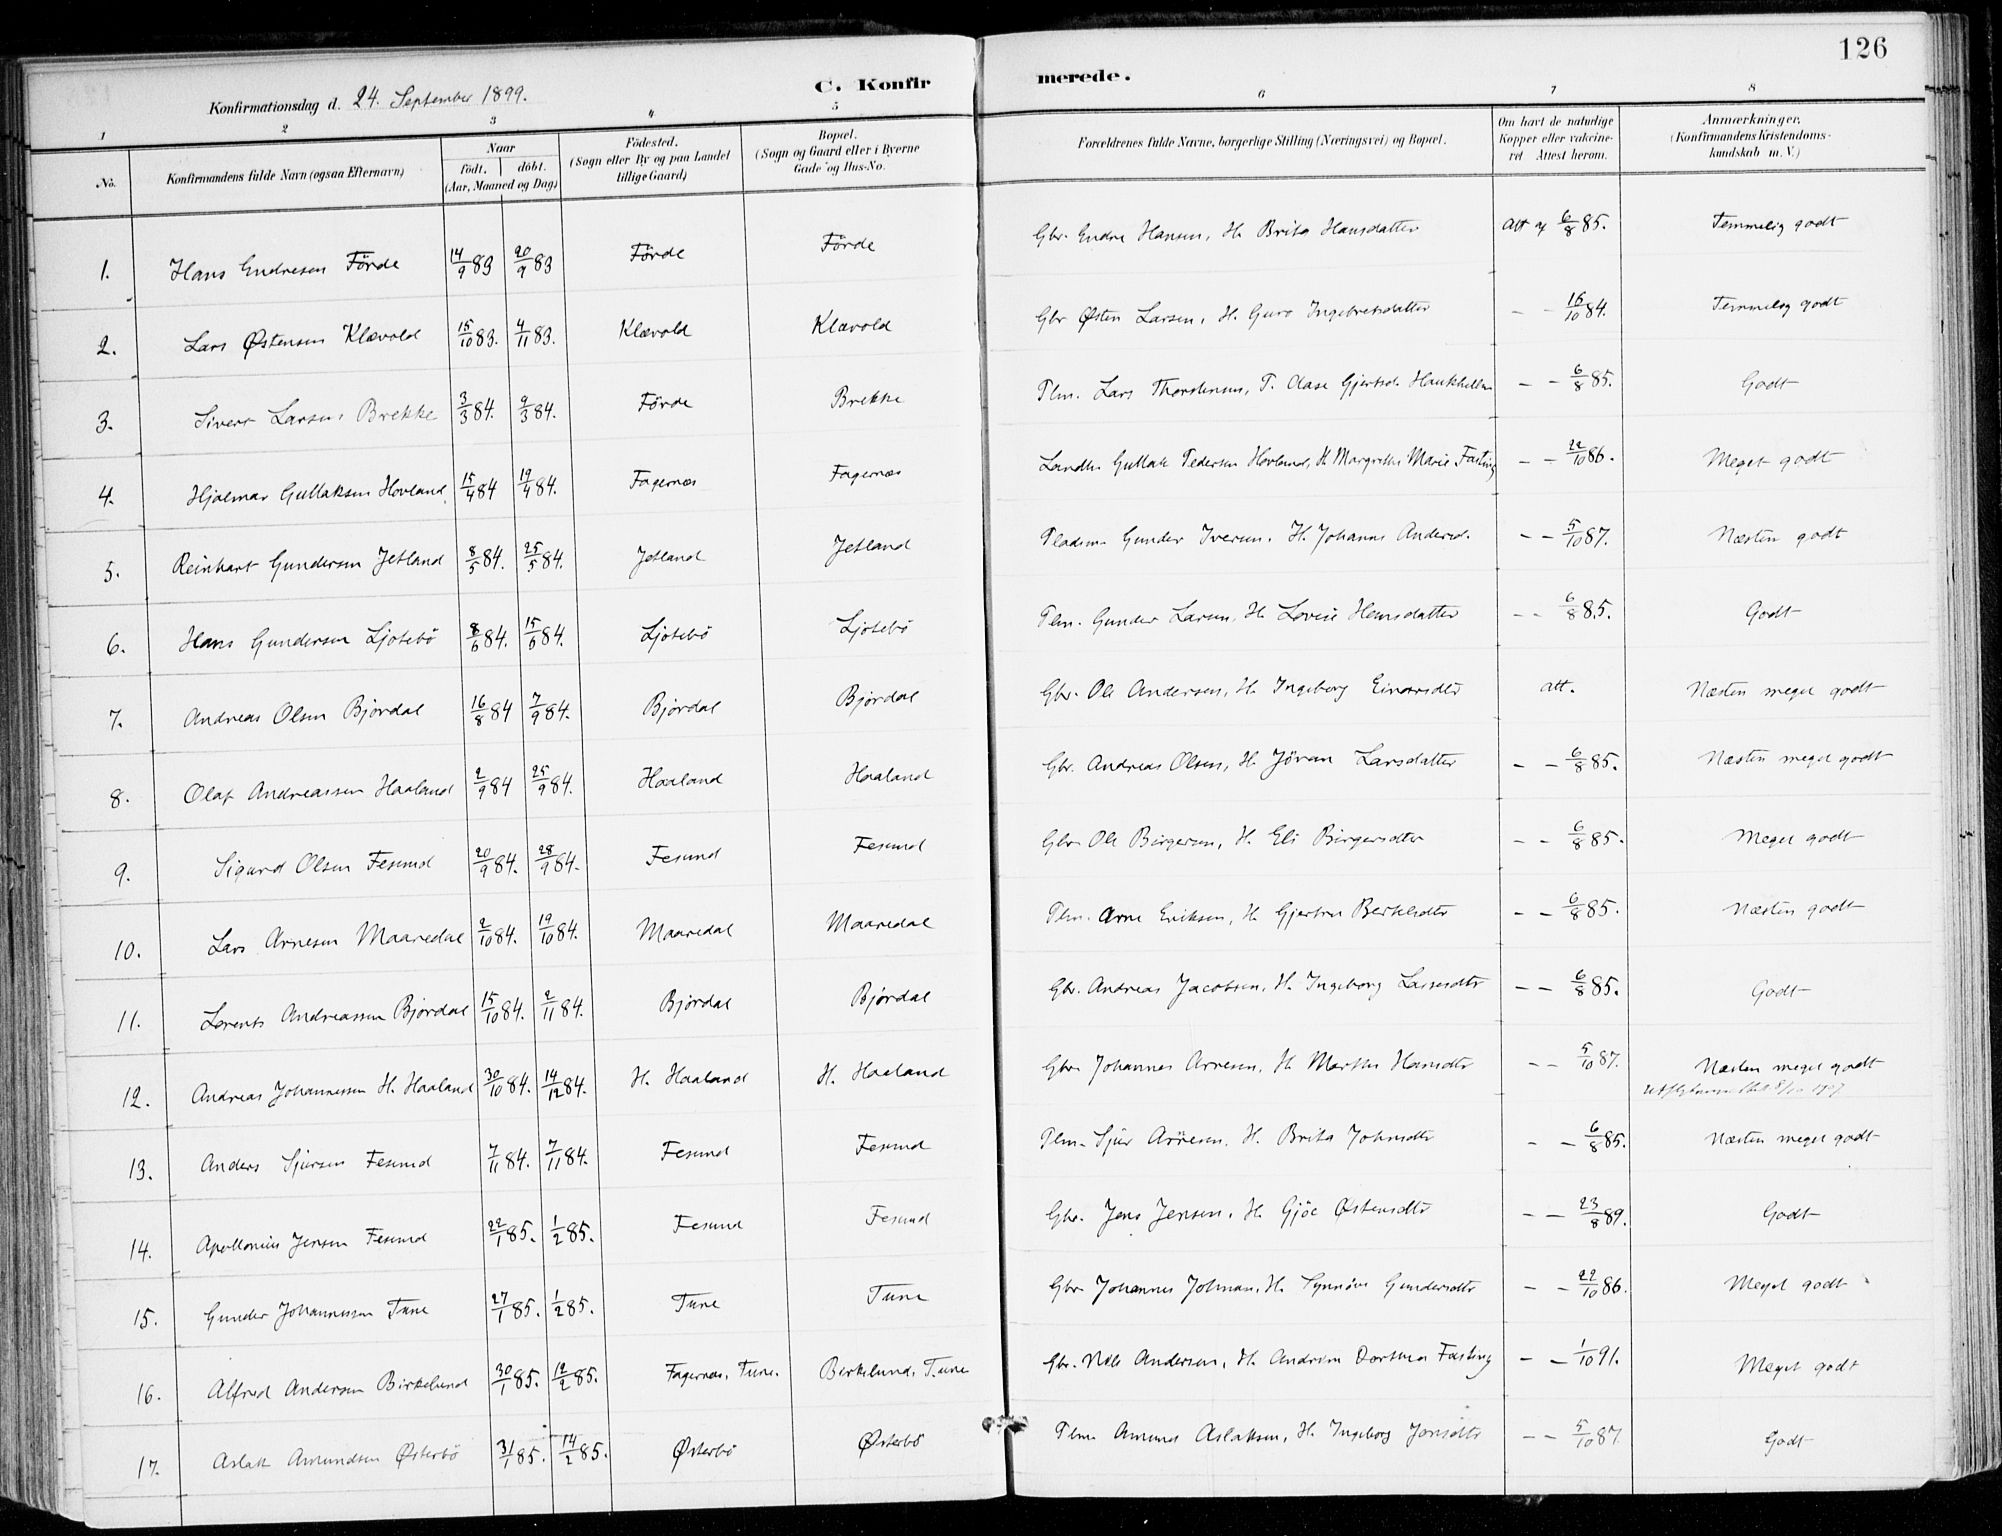 126
Konfirmationsdag d. 24. September 1899.
C. Konfirmerede.
1 2 3 4 5 6 7 8
No. Konfirmandens fulde Navn (ogsaa Efternavn) Naar født. døbt. (Aar, Maaned og Dag) Fødested. (Sogn eller By og paa Landet tillige Gaard) Bopæl. (Sogn og Gaard eller i Byerne Gade og Hus-No. Forældrenes fulde Navne, borgerlige Stilling (Næringsvei) og Bopæl. Om havt de naturlige Kopper eller vakcineret Attest herom. Anmærkninger. (Konfirmandens Kristendomskundskab m. V.)
1. Hans Endresen Förde 14/9 83 20/9 83 Förde Förde Gbr. Endre Hansen, H. Brita Hansdatter Att af 6/8 85. Temmelig godt
2. Lars Østensen Klævold 15/10 83. 4/11 83. Klævold Klævold Gbr Østen Larsen, H. Guro Ingebretsdatter – – 16/10 84. Temmelig godt
3. Sivert Larsen Brekke 3/3 84. 9/3 84. Förde Brekke Plm. Lars Thorstensen, T. Aase Gjertsd. – – 6/8 85. Godt
4. Hjalmar Gullaksen Hovland 15/4 84 19/4 84. Fagernæs Fagernæs Gullak Pedersen Hovland, H. Margrethe Marie Fasting – – 22/10 86. Meget godt
5. Reinhart Gundersen Jetland 8/5 84. 25/5 84. Jetland Jetland Pladsm. Gunder Iversen, H. Johanne Andersd. – – 5/10 87. Næsten godt
6. Hans Gundersen Ljotebö 8/6 84. 15/6 84. Ljotebö Ljotebö Plm. Gunder Larsen, H. Lovise Hansdatter – – 6/8 85. Godt
7. Andreas Olsen Björdal 16/8 84 7/9 84. Björdal Björdal Gbr. Ole Andersen, H. Ingeborg Einarsdtr Att. Næsten meget godt
8. Olaf Andreassen Haaland 2/9 84 25/9 84. Haaland Haaland Gbr. Andreas Olsen, H. Jöran Larsdatter – – 6/8 85. Næsten meget godt
9. Sigurd Olsen Fesund 20/9 84. 28/9 84. Fesund Fesund Gbr. Ole Birgersen, H. Eli Birgersdtr – – 6/8 85. Meget godt
10. Lars Arnesen Maaredal 2/10 84. 19/10 84. Maaredal Maaredal Plm. Arne Eriksen, H. Gjertrud – – 6/8 85. Næsten godt
11. Lorents Andreassen Björdal 15/10 84. 2/11 84. Björdal Björdal Gbr. Andreas Jacobsen, H. Ingeborg Lassesdtr – – 6/8 85. Godt
12. Andreas Johannessen H. Haaland 30/10 84. 14/12 84. H. Haaland H. Haaland Gbr Johannes Arnesen, H. Marthe Hansdtr – – 5/10 87. Næsten meget godt
1907
13. Anders Sjursen Fesund 7/11 84. 7/11 84. Fesund Fesund Plm. Sjur Arnesen, H. Brita Johnsdtr – – 6/8 85. Næsten meget godt
14. Apollonius Jensen Fesund 22/1 85. 1/2 85. Fesund Fesund Gbr. Jens Jensen, H. Gjöe Østensdtr – – 23/8 89. Godt
15. Gunder Johannessen Tune 27/1 85. 1/2 85. Tune Tune Gbr Johannes Johnsen, H. Synnöve Gundersdtr – – 22/10 86. Meget godt
16. Alfred Andersen Birkelund 30/1 85. 12/2 85. Fagernæs, Tune. Birkelund, Tune Gbr. Nils Andersen, H. Andrea Dorthea Fasting – – 1/10 91. Meget godt
17. Aslak Amundsen Østerbö 31/1 85. 14/2 85. Østerbö Østerbö Plm. Amund Aslaksen, H. Ingeborg Jonsdtr – – 5/10 87. Godt